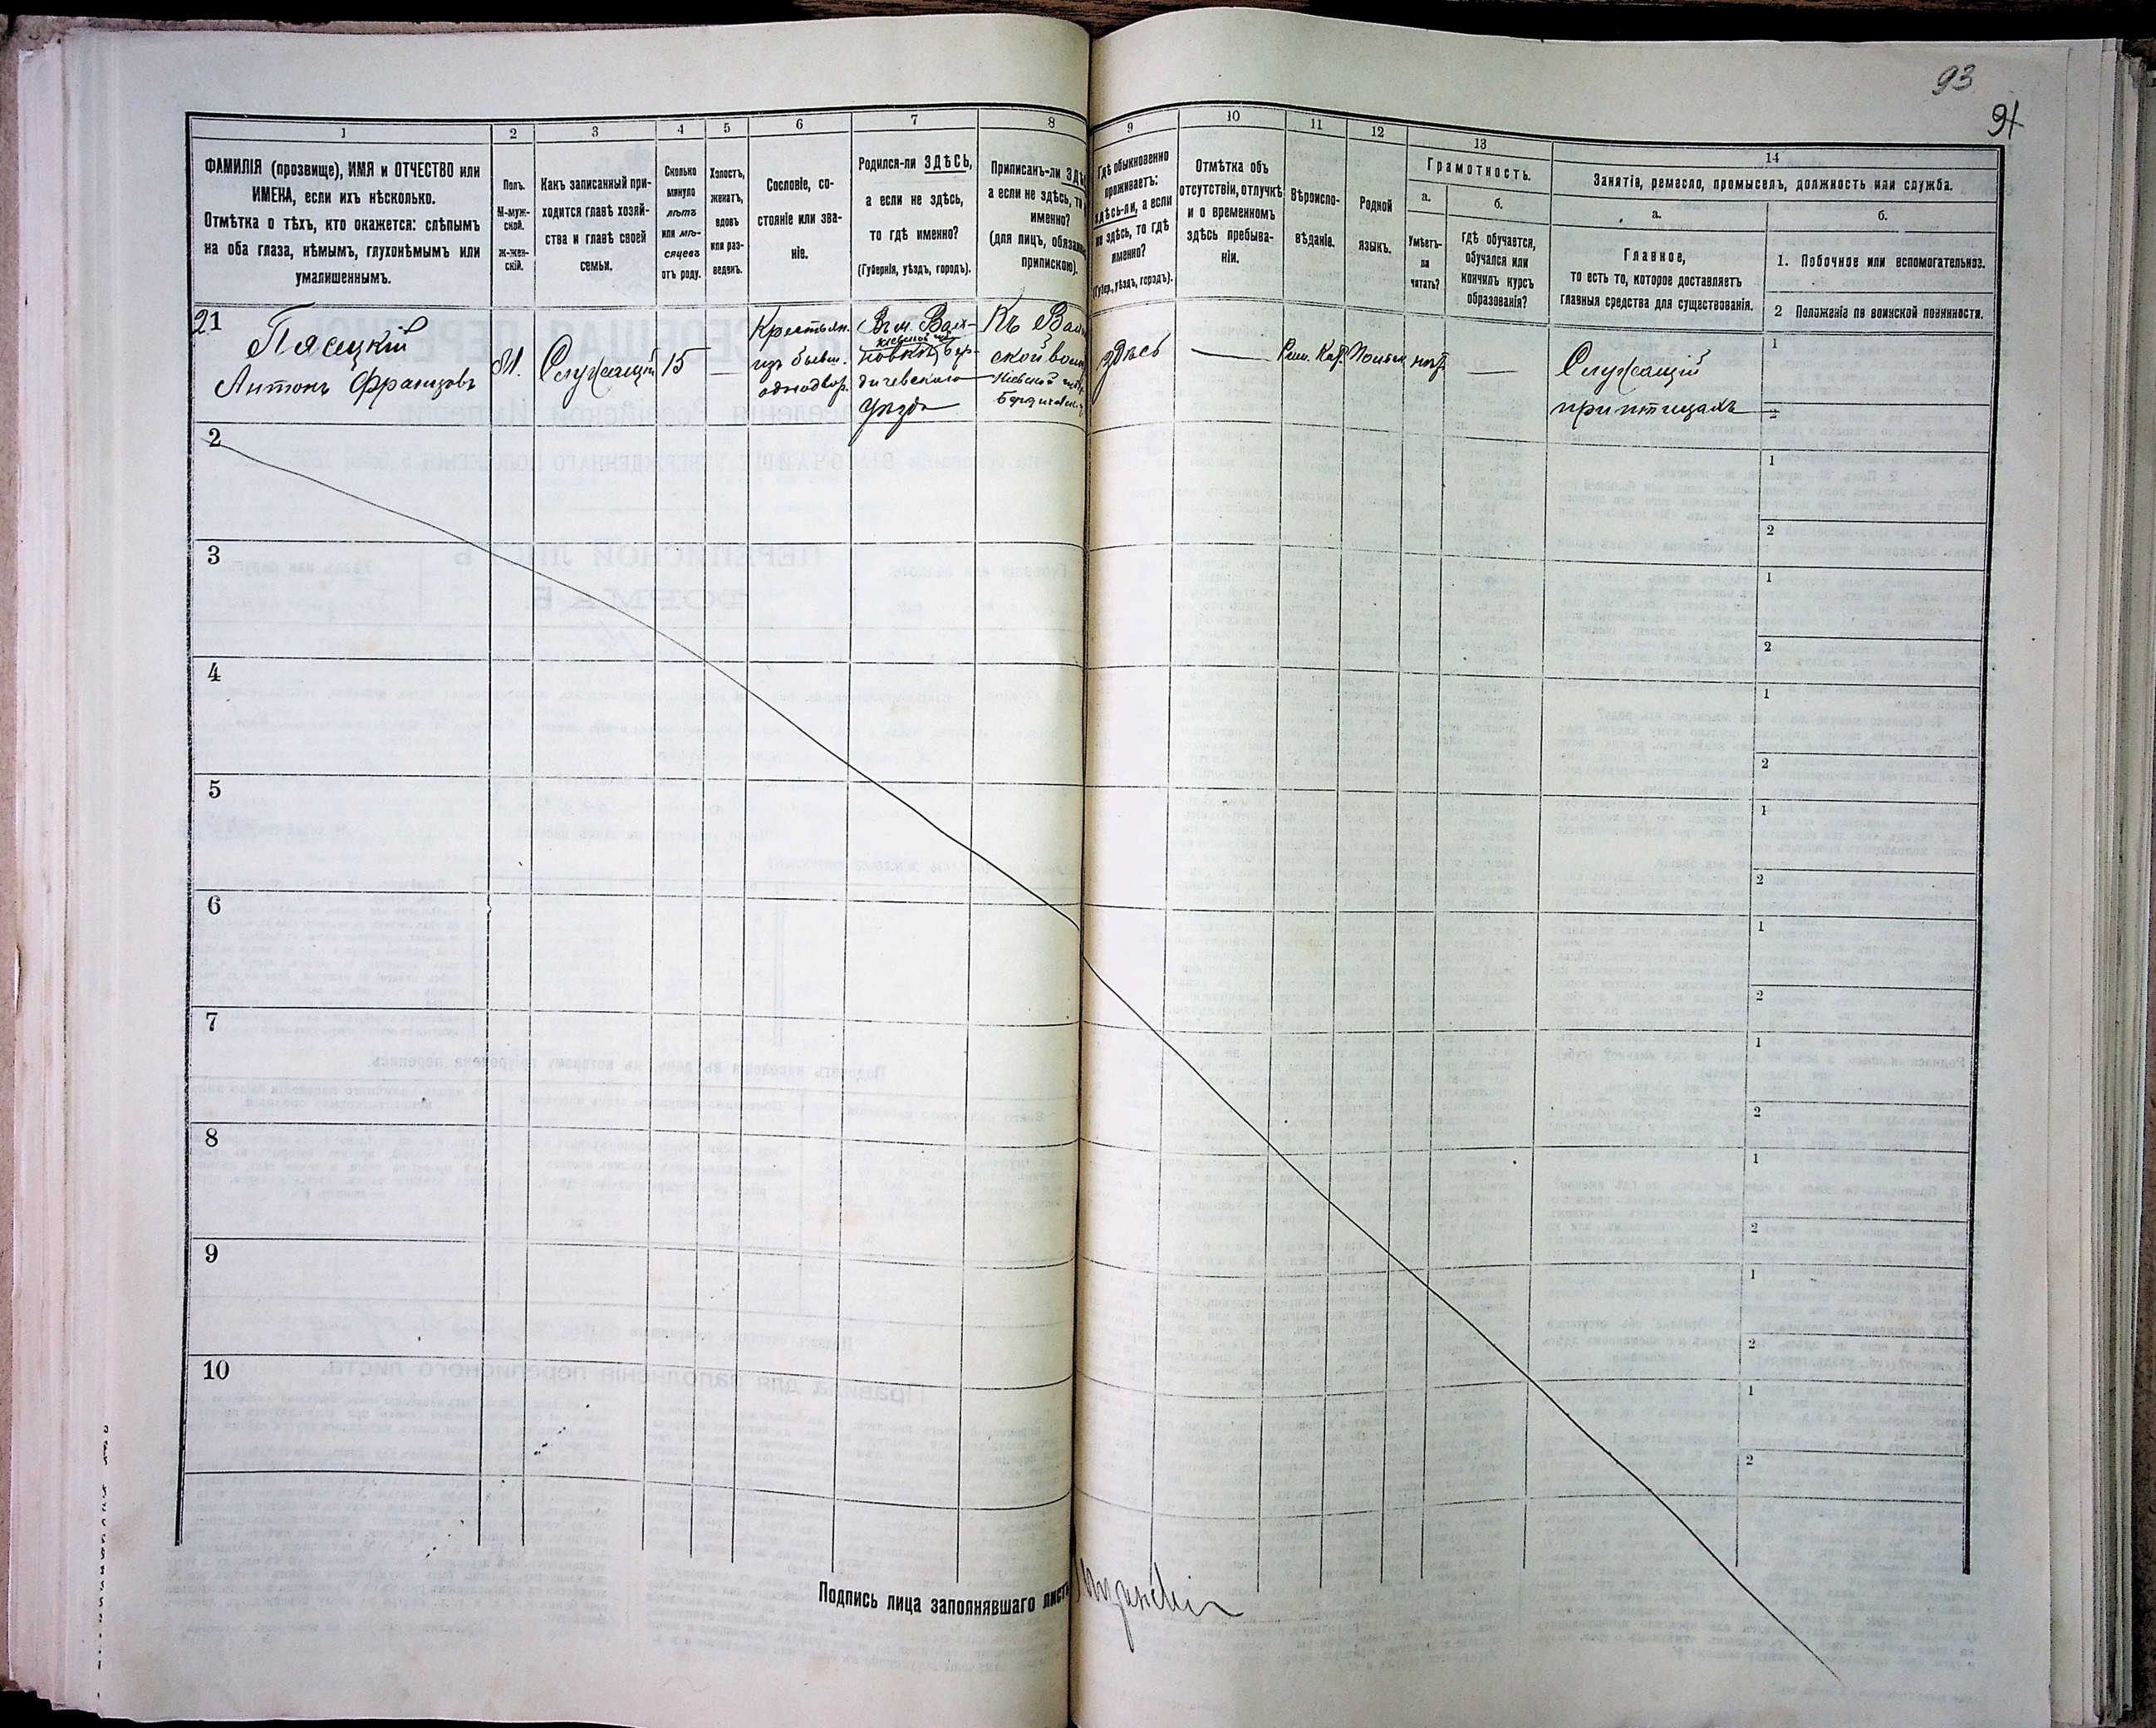 93
91
1
2
3
4
5
6
7
8
9
10
11
12
13
14
ФАМИЛІЯ (прозвище), ИМЯ и ОТЧЕСТВО или
ИМЕНА, если ихъ нѣсколько.
Отмѣтка о тѣхъ, кто окажется: слѣпымъ
на оба глаза, нѣмымъ, глухонѣмымъ или
умалишеннымъ.
Полъ.
М-муж-
ской.
Ж-жен-
скій.
Какъ записанный при-
ходится главѣ хозяй-
ства и главѣ своей
семьи.
Сколько
минуло
лѣтъ
или мѣ-
сяцевъ
отъ роду.
Холостъ,
женатъ,
вдовъ
или раз-
веденъ.
Сословіе, со-
стояніе или зва-
ніе.
Родился-ли ЗДѢСЬ,
а если не здѣсь,
то гдѣ именно?
(Губернія, уѣздъ, городъ).
Приписанъ-ли
а если не здѣсь,
именно?
(для лицъ,
припискою).
Гдѣ обыкновенно
проживаетъ:
здѣсь-ли, а если
не здѣсь, то гдѣ
именно?
(Губер., уѣздъ, городъ).
Отмѣтка объ
отсутствіи, отлучкѣ
и о временномъ
здѣсь пребыва-
ніи.
Вѣроиспо-
вѣданіе.
Родной
языкъ.
Грамотность.
а.
Умѣетъ-
ли
читать?
б.
гдѣ обучается,
обучался или
кончилъ курсъ
образованія?
Занятіе, ремесло, промыселъ, должность или служба.
а.
Главное,
то есть то, которое доставляетъ
главныя средства для существованія.
б.
1. Побочное или вспомогательное.
2 Положеніе по воинской повинности.
21
Пясецкій
Антонъ Францовъ
М.
Служащій
15
—
Крестьян.
изъ бывш.
однодвор.
новкѣ, Бер-
дичевскаго
уѣзда
Къ
ской вол.
Кіевской губ.
здѣсь
—
Рим. Каѳ.
нѣтъ
—
Служащій
при птицахъ
1
2
2
1
2
3
1
2
4
1
2
5
1
2
6
1
2
7
1
2
8
1
2
9
1
2
10
1
2
Подпись лица заполнявшаго листъ